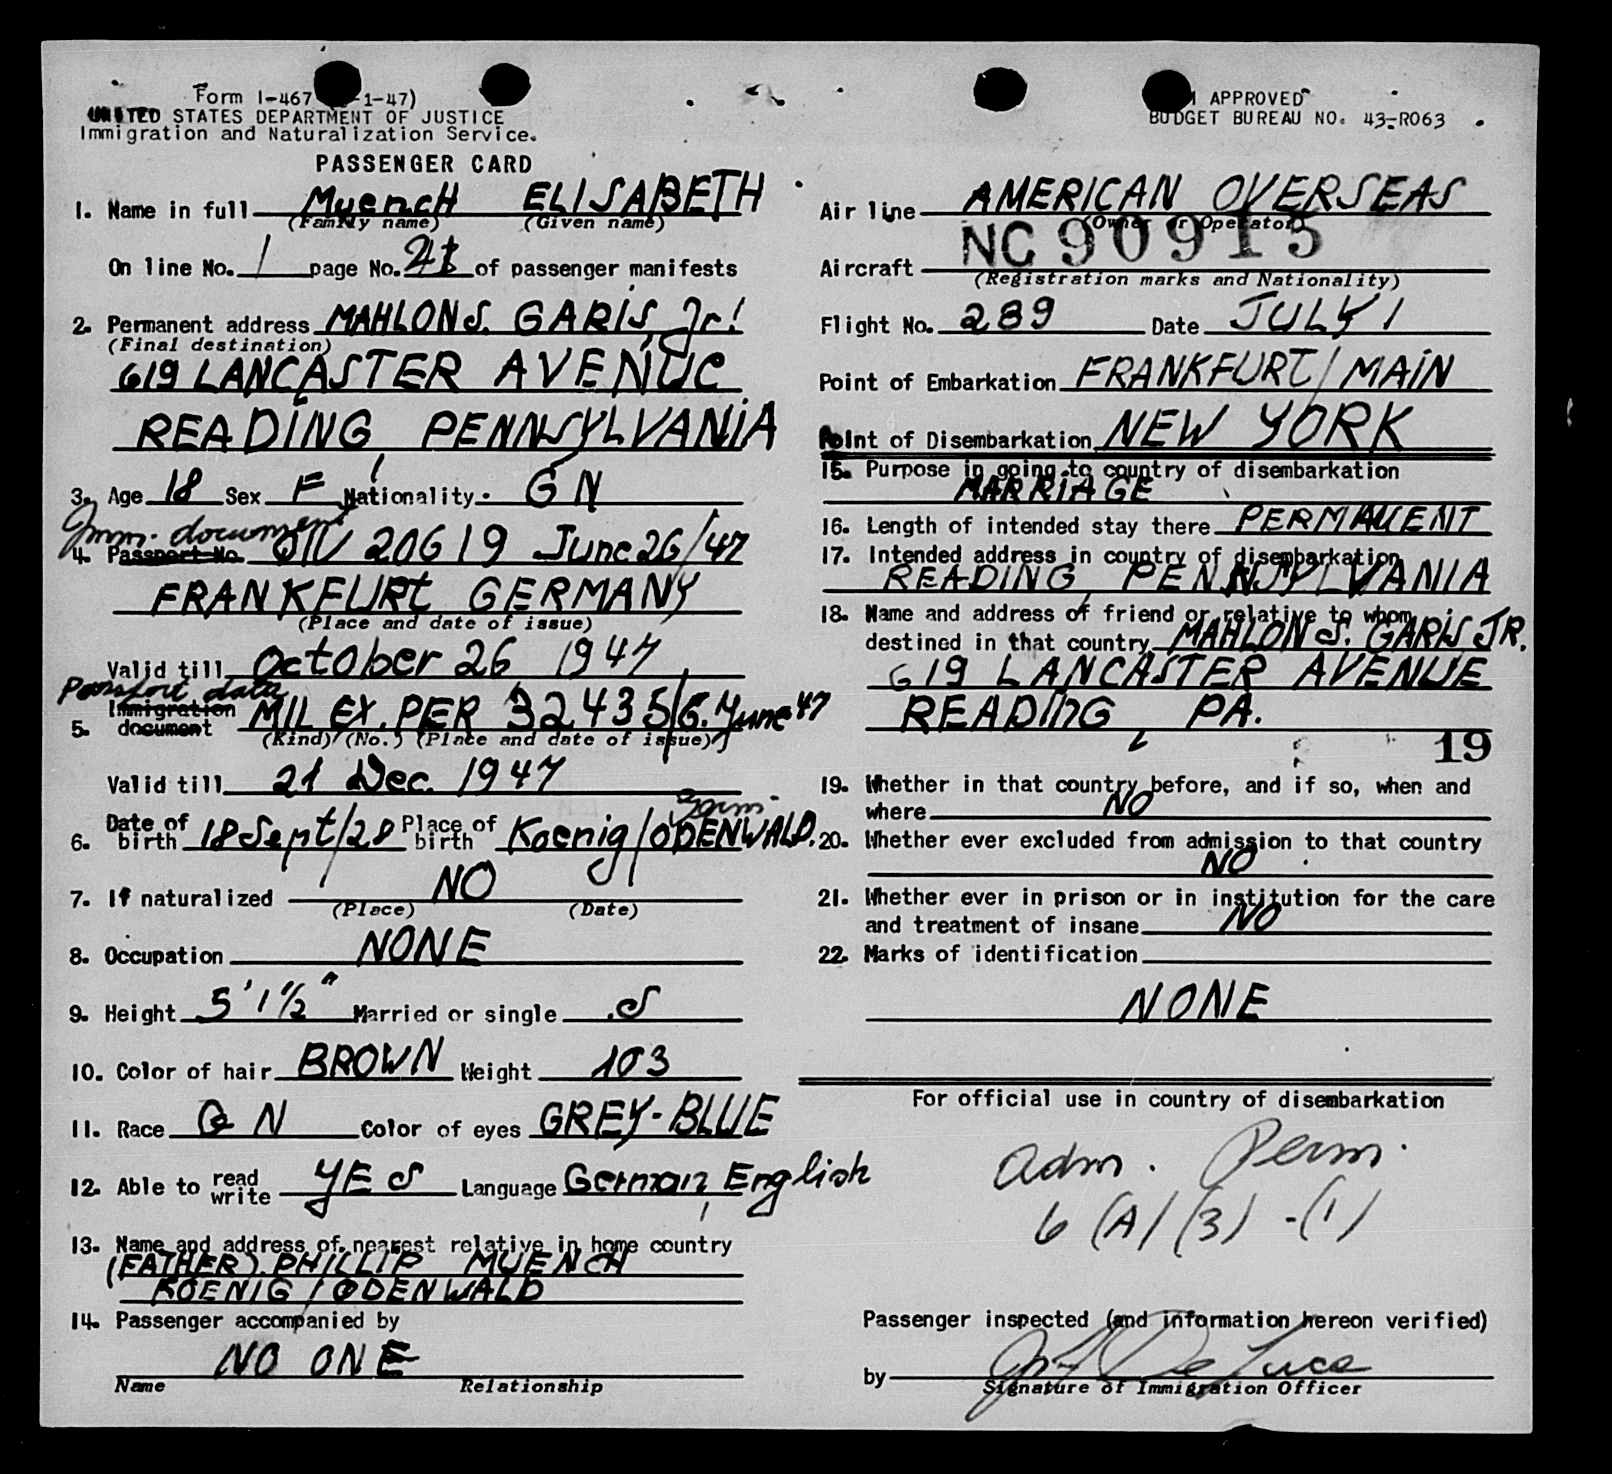 Form I-467 -1-47)
UNITED STATES DEPARTMENT OF JUSTICE
Immigration and Naturalization Service.
PASSENGER CARD
1. Name in full MuencH ELISABETH
(Family name) (Given name)
On line No. 1 page No. of passenger manifests
2. Permanent address MAHLON S. GARIS, Jr!
(Final destination)
619 LANCASTER AVENUE
READING, PENNSYLVANIA
3. Age 18 Sex F Nationality. GN
Imm. document
4. Passport No. 20619 June 26/47
FRANKFURt GERMANY
(Place and date of issue)
Valid till October 26 1947
Passport data
5. Immigration document MIL EX. PER 32435/6. June 47
(Kind) (No.) (Place and date of issue)
Valid till 21 Dec. 1947
Germ.
6. Date of birth 18 Sept/28 Place of birth Koenig/ODENWALD.
7. If naturalized NO
(Place) (Date)
8. Occupation NONE
9. Height 5'1½" Married or single S
10. Color of hair BROWN Weight 103
11. Race GN Color of eyes GREY-BLUE
12. Able to read write YES Language German, English
13. Name and address of nearest relative in home country
(FATHER). PHILLIP MUENCH
KOENIG / ODENWALD
14. Passenger accompanied by
NO ONE
Name Relationship
APPROVED
BUDGET BUREAU NO. 43-R063
Air line AMERICAN OVERSEAS
(Owner or Operator)
Aircraft NC 90915
(Registration marks and Nationality)
Flight No. 289 Date JULY 1
Point of Embarkation FRANKFURT/MAIN
Point of Disembarkation NEW YORK
15. Purpose in going to country of disembarkation
MARRIAGE
16. Length of intended stay there PERMANENT
17. Intended address in country of disembarkation
READING, PENNSYLVANIA
18. Name and address of friend or relative to whom
destined in that country MAHLON S. GARIS JR.
619 LANCASTER AVENUE
READING, PA.
19
19. Whether in that country before, and if so, when and
where NO
20. Whether ever excluded from admission to that country
NO
21. Whether ever in prison or in institution for the care
and treatment of insane NO
22. Marks of identification
NONE
For official use in country of disembarkation
Adm. Perm.
6 (A) (3) - (1)
Passenger inspected (and information hereon verified)
by De Luca
Signature of Immigration Officer